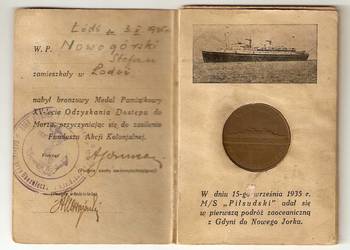 Łódź
W. P. Nowogórski
Stefan
zamieszkały w Łodzi
nabył bronzowy Medal Pamiątkowy
XV-lecie Odzyskania Dostępu do
Morza, przyczyniając się do zasilenia
Funduszu Akcji Kolonjalnej.
W dniu 15-go września 1935 r.
M/S „Piłsudski" udał się
w pierwszą podróż zaoceaniczną
z Gdyni do Nowego Jorku.